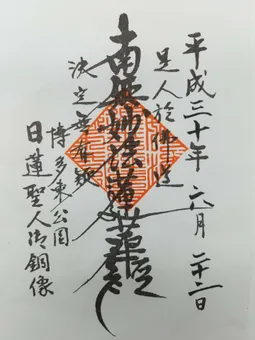 平成三十年六月二十二日
是人於佛道
南無妙法蓮華経
決定無有疑
博多東公園
日蓮聖人御銅像